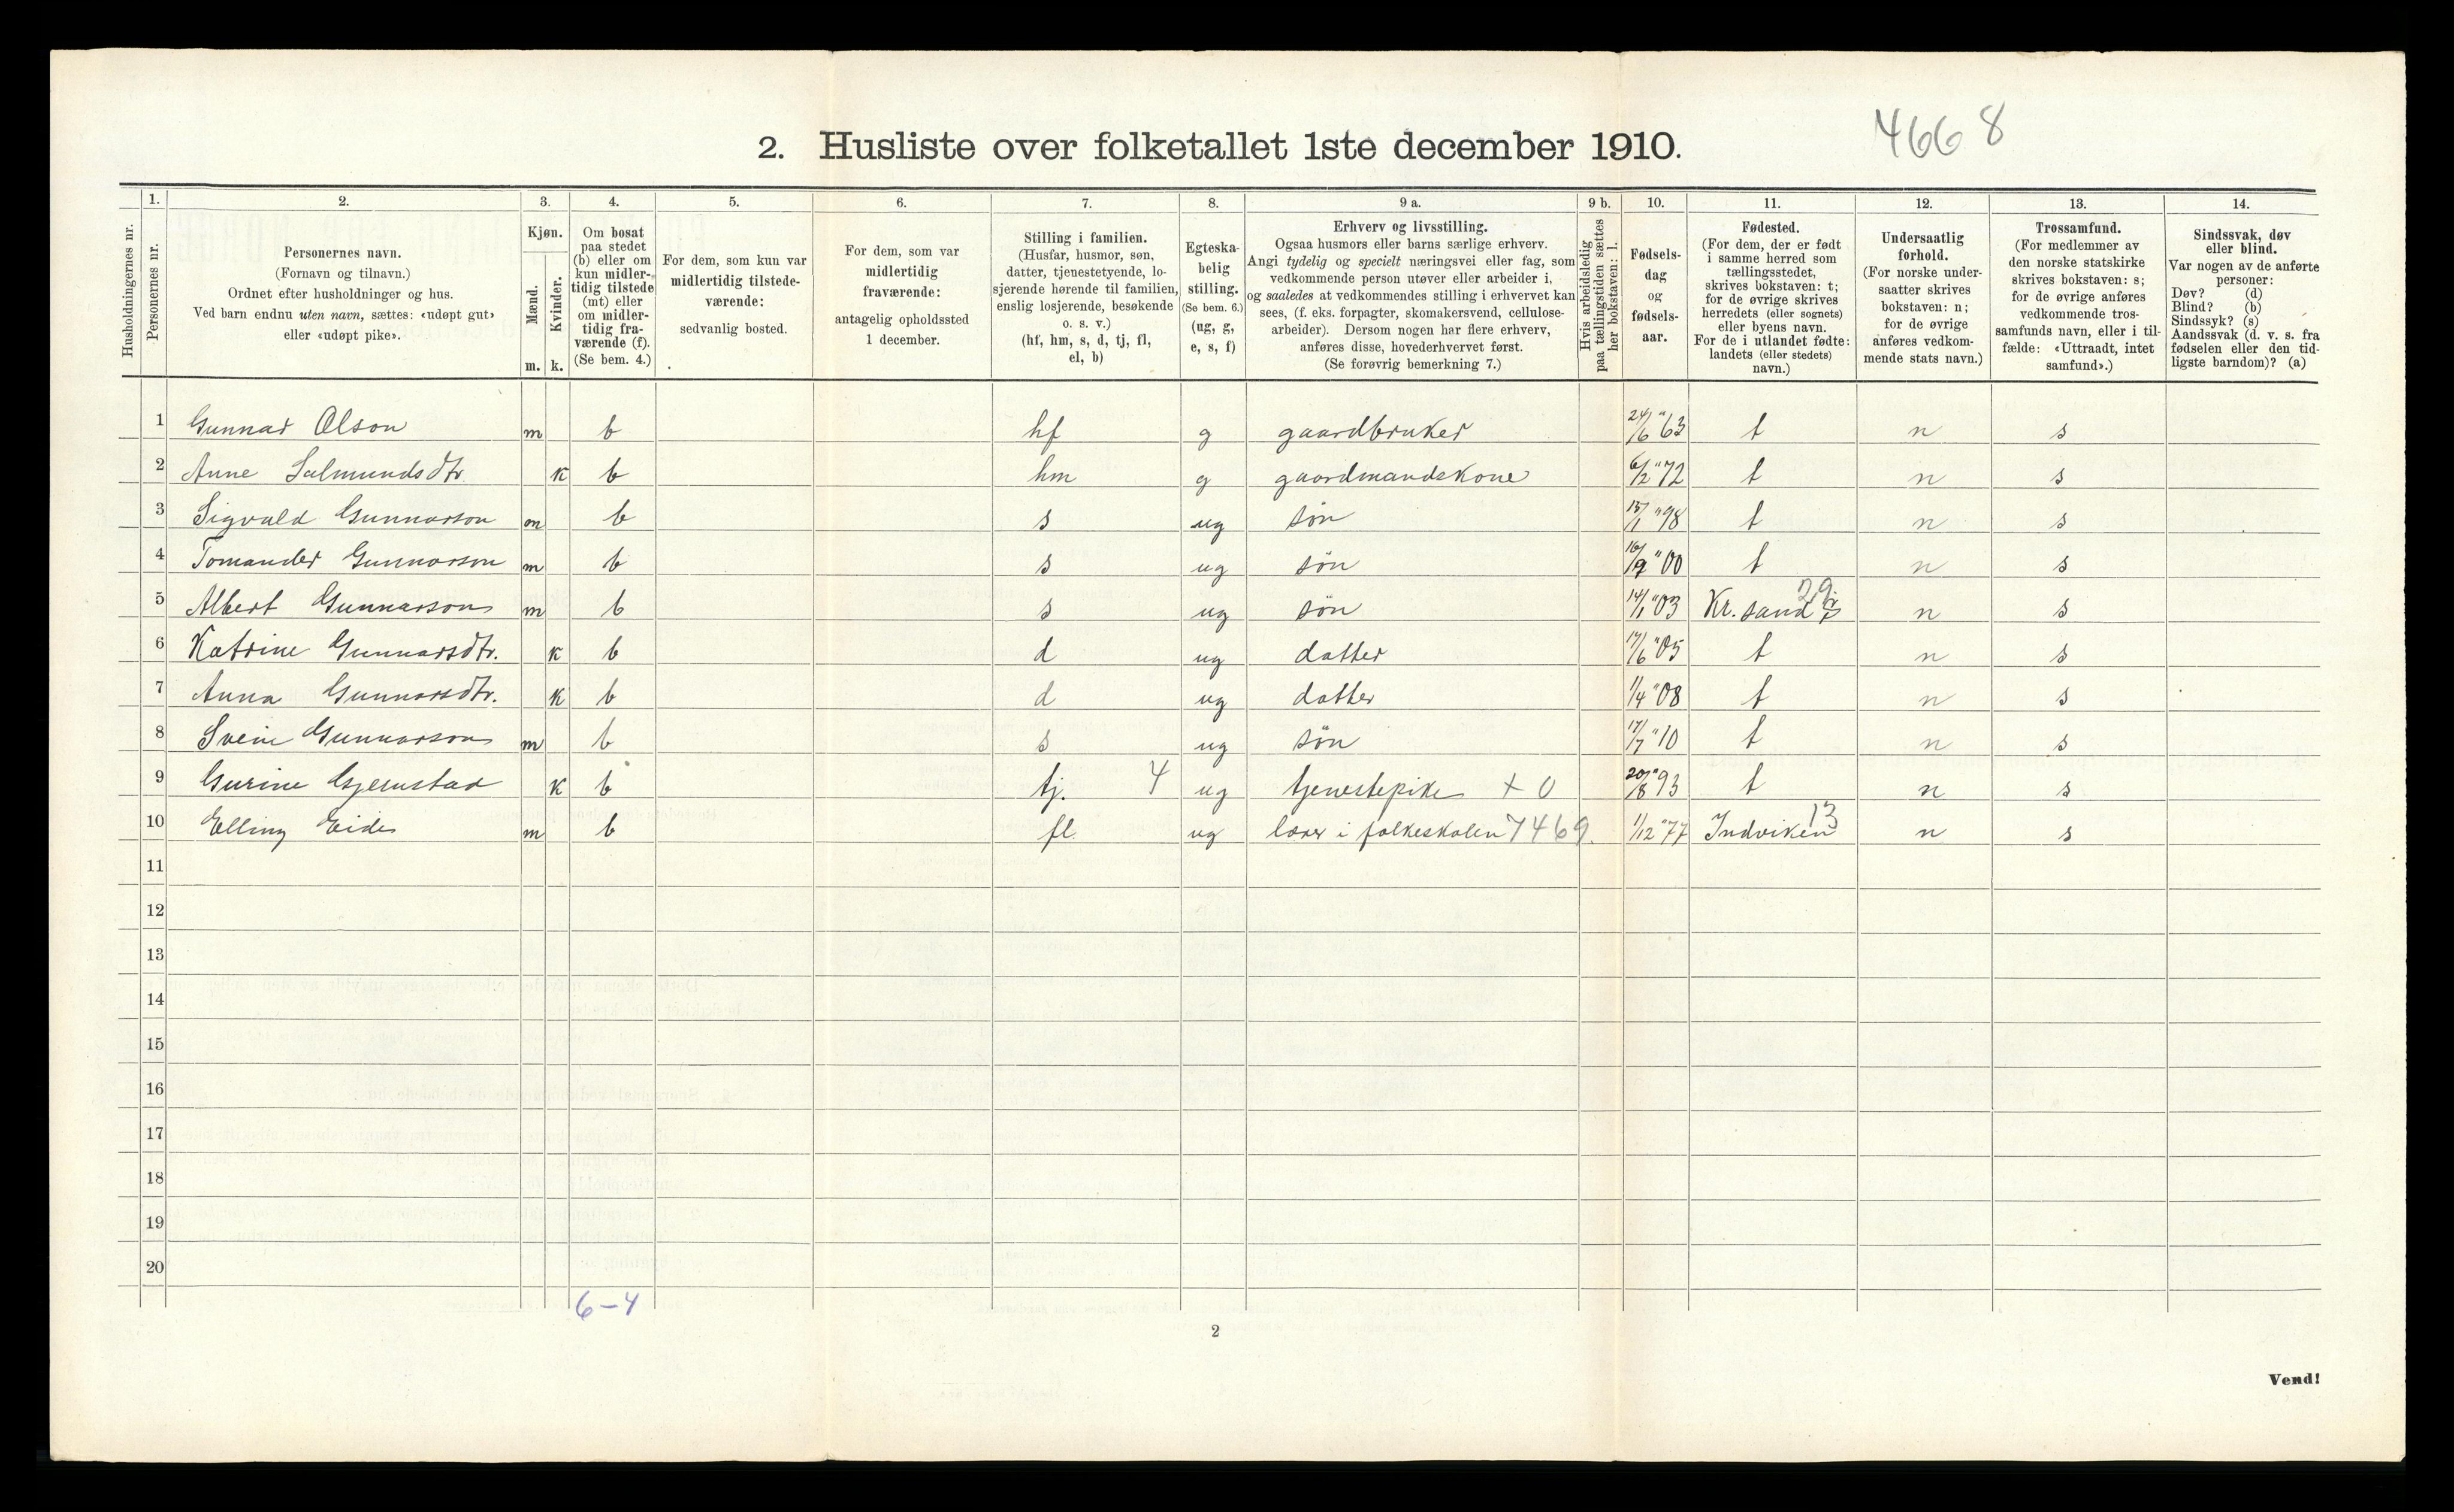 4668
2. Husliste over folketallet 1ste december 1910.
Husholdningernes nr.
1. Personernes nr.
2. Personernes navn. (Fornavn og tilnavn.) Ordnet efter husholdninger og hus. Ved barn endnu uten navn, sættes: «udøpt gut» eller «udøpt pike».
3. Kjøn. Mænd. m. Kvinder. k.
4. Om bosat paa stedet (b) eller om kun midlertidig tilstede (mt) eller om midlertidig fraværende (f). (Se bem. 4.)
5. For dem, som kun var midlertidig tilstedeværende: sedvanlig bosted.
6. For dem, som var midlertidig fraværende: antagelig opholdssted 1 december.
7. Stilling i familien. (Husfar, husmor, søn, datter, tjenestetyende, losjerende hørende til familien, enslig losjerende, besøkende o. s. v.) (hf, hm, s, d, tj, fl, el, b)
8. Egteskabelig stilling. (Se bem. 6.) (ug, g, e, s, f)
9 a. Erhverv og livsstilling. Ogsaa husmors eller barns særlige erhverv. Angi tydelig og specielt næringsvei eller fag, som vedkommende person utøver eller arbeider i, og saaledes at vedkommendes stilling i erhvervet kan sees, (f. eks. forpagter, skomakersvend, cellulosearbeider). Dersom nogen har flere erhverv, anføres disse, hovederhvervet først. (Se forøvrig bemerkning 7.)
9 b. Hvis arbeidsledig paa tællingstiden sættes her bokstaven: l.
10. Fødselsdag og fødselsaar.
11. Fødested. (For dem, der er født i samme herred som tællingsstedet, skrives bokstaven: t; for de øvrige skrives herredets (eller sognets) eller byens navn. For de i utlandet fødte: landets (eller stedets) navn.)
12. Undersaatlig forhold. (For norske undersaatter skrives bokstaven: n; for de øvrige anføres vedkommende stats navn.)
13. Trossamfund. (For medlemmer av den norske statskirke skrives bokstaven: s; for de øvrige anføres vedkommende trossamfunds navn, eller i tilfælde: «Uttraadt, intet samfund».)
14. Sindssvak, døv eller blind. Var nogen av de anførte personer: Døv? (d) Blind? (b) Sindssyk? (s) Aandssvak (d. v. s. fra fødselen eller den tidligste barndom)? (a)
1 Gunnar Olson m b hf g gaardbruker 24/6 "63 t n s
2 Anne Salmundsdtr. k b hm g gaardmandskone 6/2 "72 t n s
3 Sigvald Gunnarson m b s ug søn 15/1 "98 t n s
4 Tomander Gunnarson m b s ug søn 16/9 "00 t n s
5 Albert Gunnarson m b s ug søn 14/1 "03 Kr. sand 29 n s
6 Katrine Gunnarsdtr. k b d ug datter 17/6 "05 t n s
7 Anna Gunnarsdtr. k b d ug datter 1/4 "08 t n s
8 Svein Gunnarson m b s ug søn 17/7 "10 t n s
9 Gurine Gjernstad k b tj. 4 ug tjenestepike + 0 20/8 "93 t n s
10 Elling Eide m b fl. ug lærer i folkeskolen 7469. 1/12 "77 Indviken 13 n s
11
12
13
14
15
16
17
18
19
20
6-4
2
Vend!